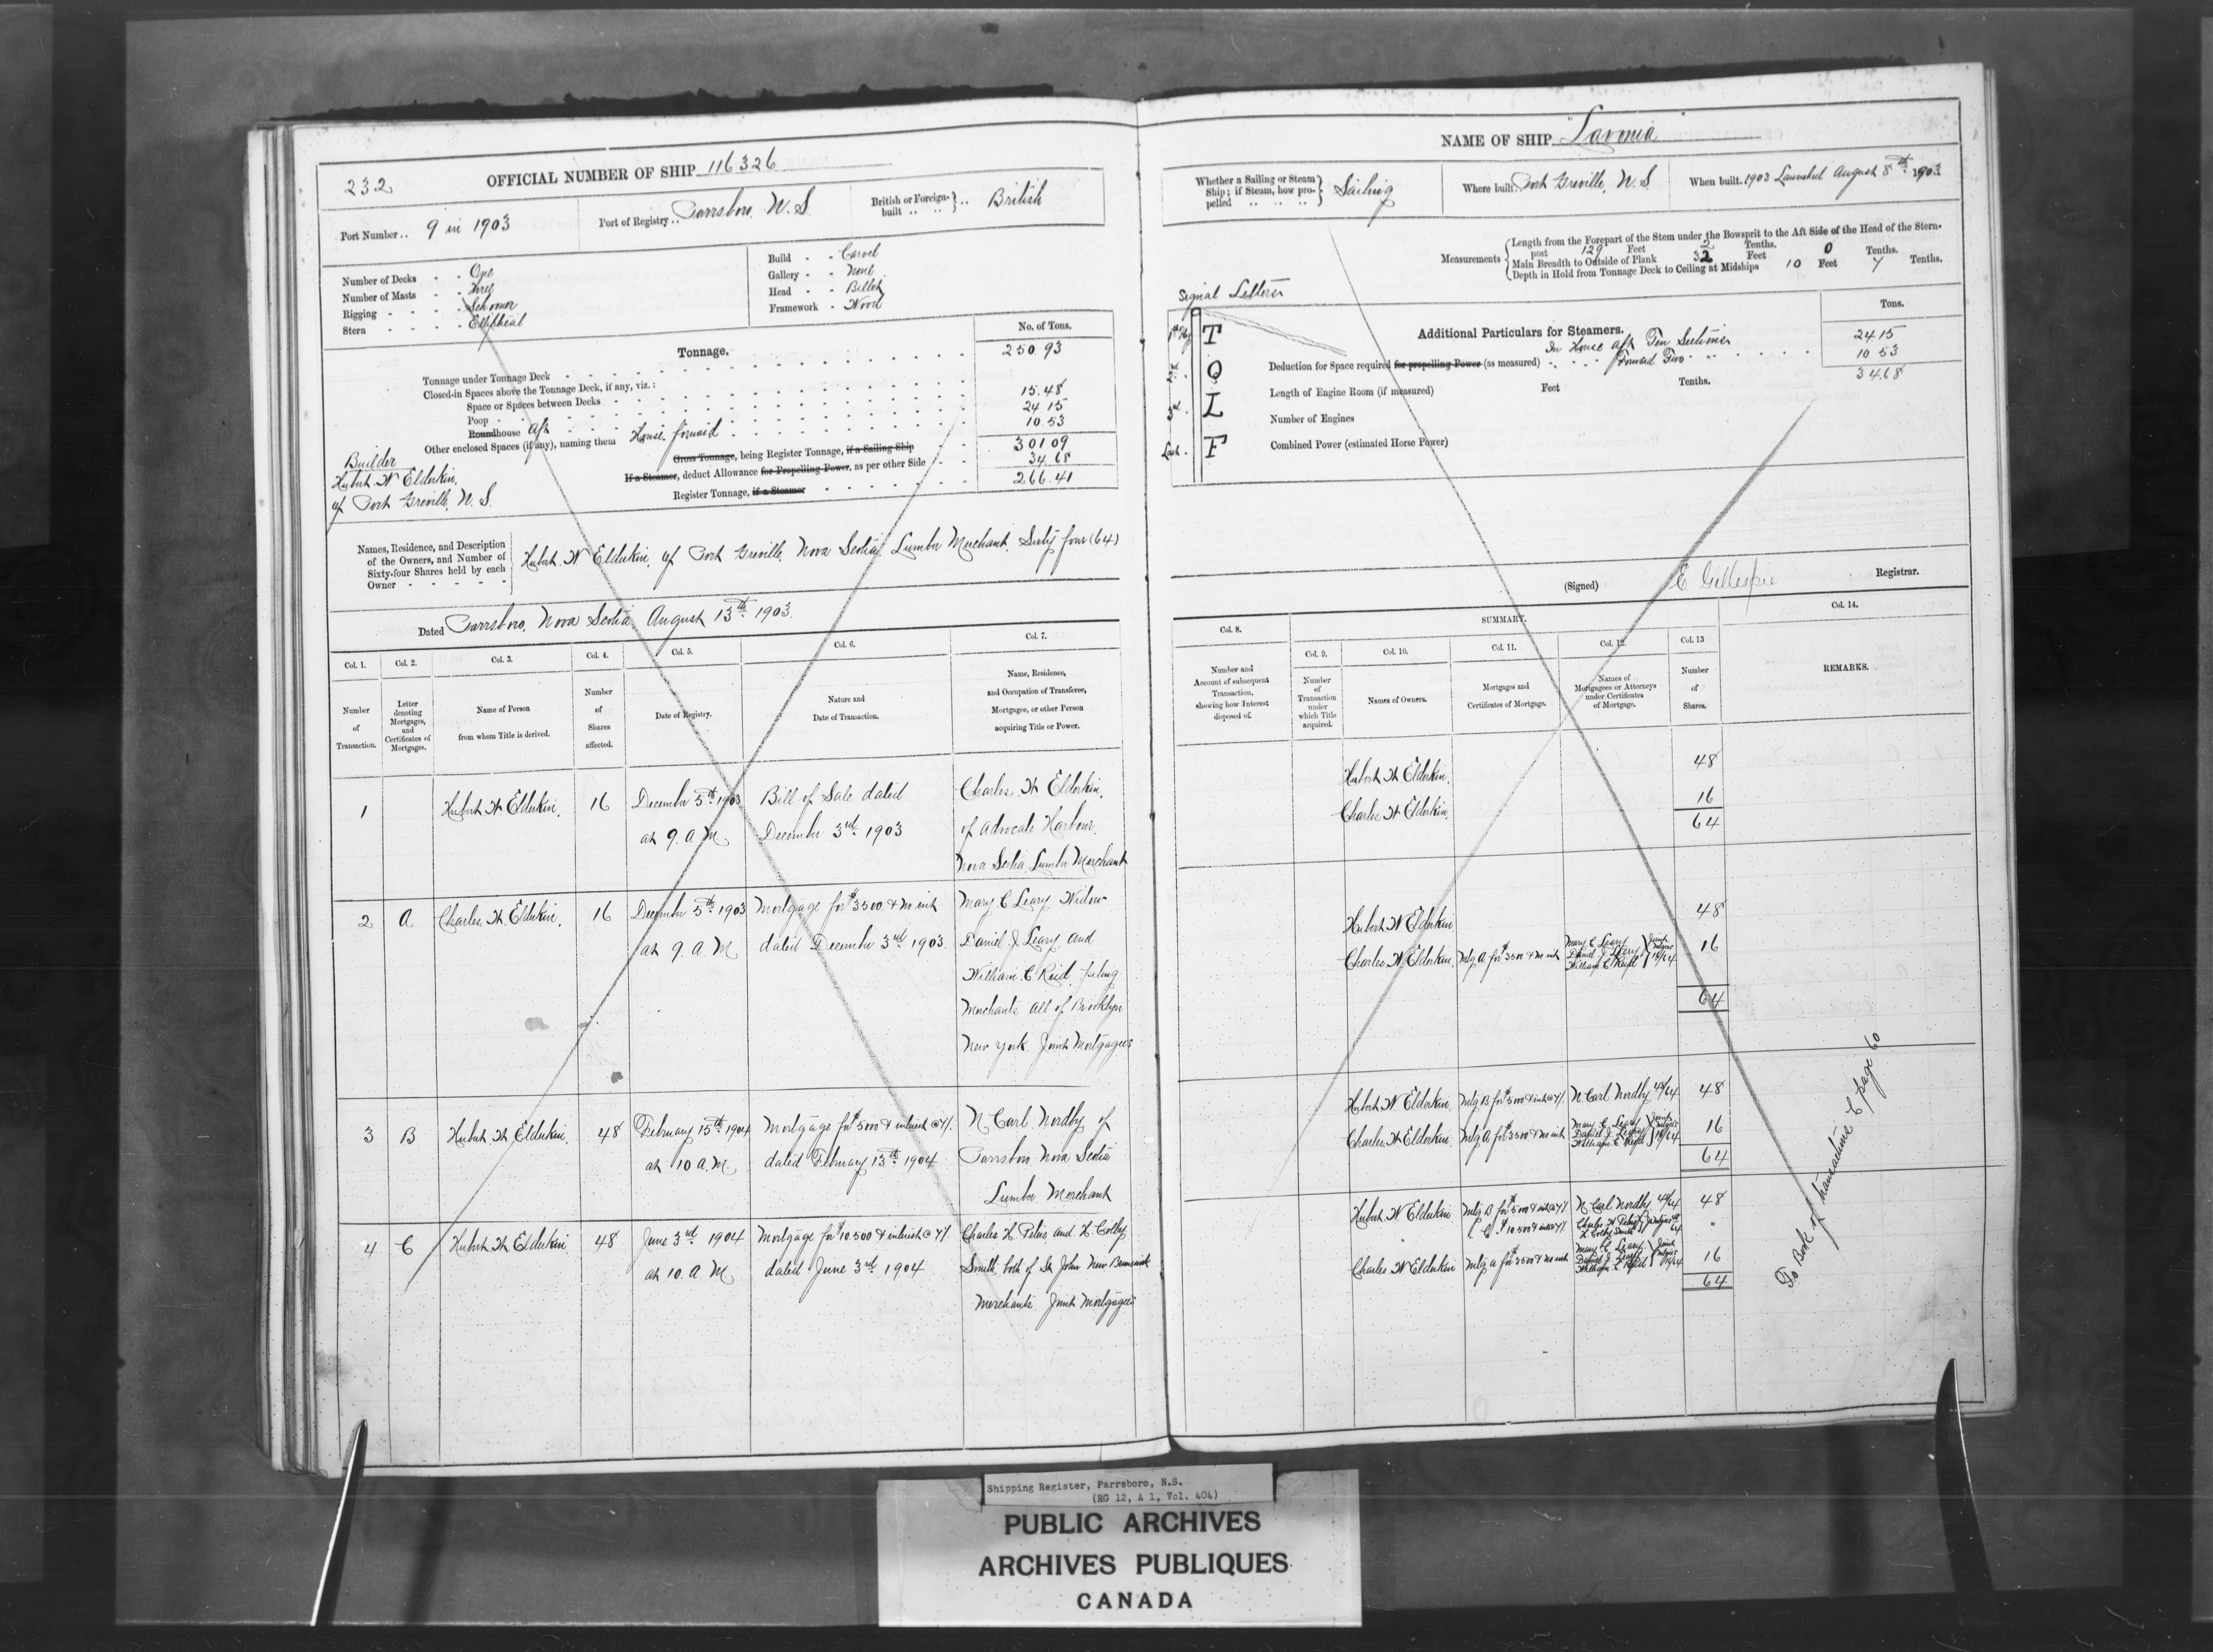 232
OFFICIAL NUMBER OF SHIP 116326
Port Number.. 9 in 1903
Port of Registry.. Parrsboro, N.S.
British or Foreign-built .. .. } .. British
Number of Decks - - One
Number of Masts - - Three
Rigging - - - - Schooner
Stern - - - - Elliptical
Build - - Carvel
Gallery - - None
Head - - Billet
Framework - Wood
Tonnage.
No. of Tons.
Tonnage under Tonnage Deck 250.93
Closed-in Spaces above the Tonnage Deck, if any, viz.:
Space or Spaces between Decks
Poop 15.48
Roundhouse aft 24 15
Other enclosed Spaces (if any), naming them House forward 10.53
Gross Tonnage, being Register Tonnage, if a Sailing Ship 301 09
If a Steamer, deduct Allowance for Propelling Power, as per other Side 34.68
Register Tonnage, if a Steamer 266.41
Builder
Hubert W Elderkin,
of Port Greville, N.S.
Names, Residence, and Description
of the Owners, and Number of
Sixty-four Shares held by each
Owner - - - - -
Hubert W Elderkin, of Port Greville, Nova Scotia, Lumber Merchant, Sixty four (64)
Dated Parrsboro, Nova Scotia, August 13th 1903.
Col. 1.
Number
of
Transaction.
Col. 2.
Letter
denoting
Mortgages,
and
Certificates of
Mortgages.
Col. 3.
Name of Person
from whom Title is derived.
Col. 4.
Number
of
Shares
affected.
Col. 5.
Date of Registry.
Col. 6.
Nature and
Date of Transaction.
Col. 7.
Name, Residence,
and Occupation of Transferee,
Mortgagee, or other Person
acquiring Title or Power.
1
Hubert W Elderkin,
16
December 5th 1903
at 9. A M
Bill of Sale dated
December 3rd 1903
Charles W Elderkin,
of Advocate Harbour,
Nova Scotia Lumber Merchant
2
A
Charles W Elderkin,
16
December 5th 1903
at 9. A. M
Mortgage for $3500 & no int
dated December 3rd 1903.
Mary C Leary Widow
Daniel J Leary and
William C Reid
Merchants all of Brooklyn
New York. Joint Mortgagees
3
B
Hubert W Elderkin.
48
February 15th 1904
at 10 A. M.
Mortgage for $5000 & interest @ 7%
dated February 13th 1904
N. Carl Nordby of
Parrsboro Nova Scotia
Lumber Merchant
4
C
Hubert W Elderkin
48
June 3rd 1904
at 10. A. M
Mortgage for $10.500 & interest @ 7%
dated June 3rd 1904
Charles H. Peters and H. Colby
Smith, both of St John New Brunswick
Merchants Joint Mortgagees
NAME OF SHIP "Lavonia
Whether a Sailing or Steam
Ship; if Steam, how pro-
pelled .. .. .. } Sailing
Where built. Port Greville, N.S.
When built. 1903 Launched August 8th 1903
Measurements
Length from the Forepart of the Stem under the Bowsprit to the Aft Side of the Head of the Stern-
post 129 Feet 2 Tenths.
Main Breadth to Outside of Plank 32 Feet 0 Tenths.
Depth in Hold from Tonnage Deck to Ceiling at Midships 10 Feet 7 Tenths.
Signal Letters
1st Flag T
2nd . Q
3rd . L
Last . F
Additional Particulars for Steamers.
Tons.
In House aft Ten Sections 24.15
Deduction for Space required for propelling Power (as measured) Forward Two " 10 53
34.68
Length of Engine Room (if measured) Feet Tenths.
Number of Engines
Combined Power (estimated Horse Power)
(Signed) E Gillespie Registrar.
Col. 8.
Number and
Account of subsequent
Transaction,
showing how Interest
disposed of.
SUMMARY.
Col. 9.
Number
of
Transaction
under
which Title
acquired.
Col. 10.
Names of Owners.
Col. 11.
Mortgages and
Certificates of Mortgage.
Col. 12.
Names of
Mortgagees or Attorneys
under Certificates
of Mortgage.
Col. 13
Number
of
Shares.
Col. 14.
REMARKS.
Hubert W Elderkin. 48
Charles W Elderkin. 16
64
Hubert W Elderkin 48
Charles W Elderkin. Mtg A for $3500 & no int Mary C Leary Daniel J Leary William C Reid } Joint Mtgees 16/64 16
64
Hubert W Elderkin. Mtg B for $5000 & int @ 7% N Carl Nordby 48/64 48
Charles W Elderkin. Mtg A for $3500 & no int Mary C Leary Daniel J Leary William C Reid } Joint Mtgees 16/64 16
64
Hubert W Elderkin Mtg B for $5000 & int @ 7% N Carl Nordby 48/64 48
" C " $10.500 & int @ 7% Charles H Peters H Colby Smith "
Charles W Elderkin Mtg A for $3500 & no int Mary C Leary Daniel J Leary William C Reid } Joint Mtgees 16/64 16
64
To Book of transactions C page 60
Shipping Register, Parrsboro, N.S.
(RG 12, A 1, Vol. 404)
PUBLIC ARCHIVES
ARCHIVES PUBLIQUES
CANADA